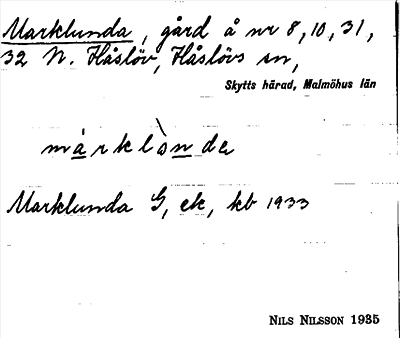 Marklunda, gård å nr 8, 10, 31,
32 N. Håslöv, Håslövs sn,
Skytts härad, Malmöhus län
márklànda
Marklunda G, ek, kb 1933
NILS NILSSON 1935